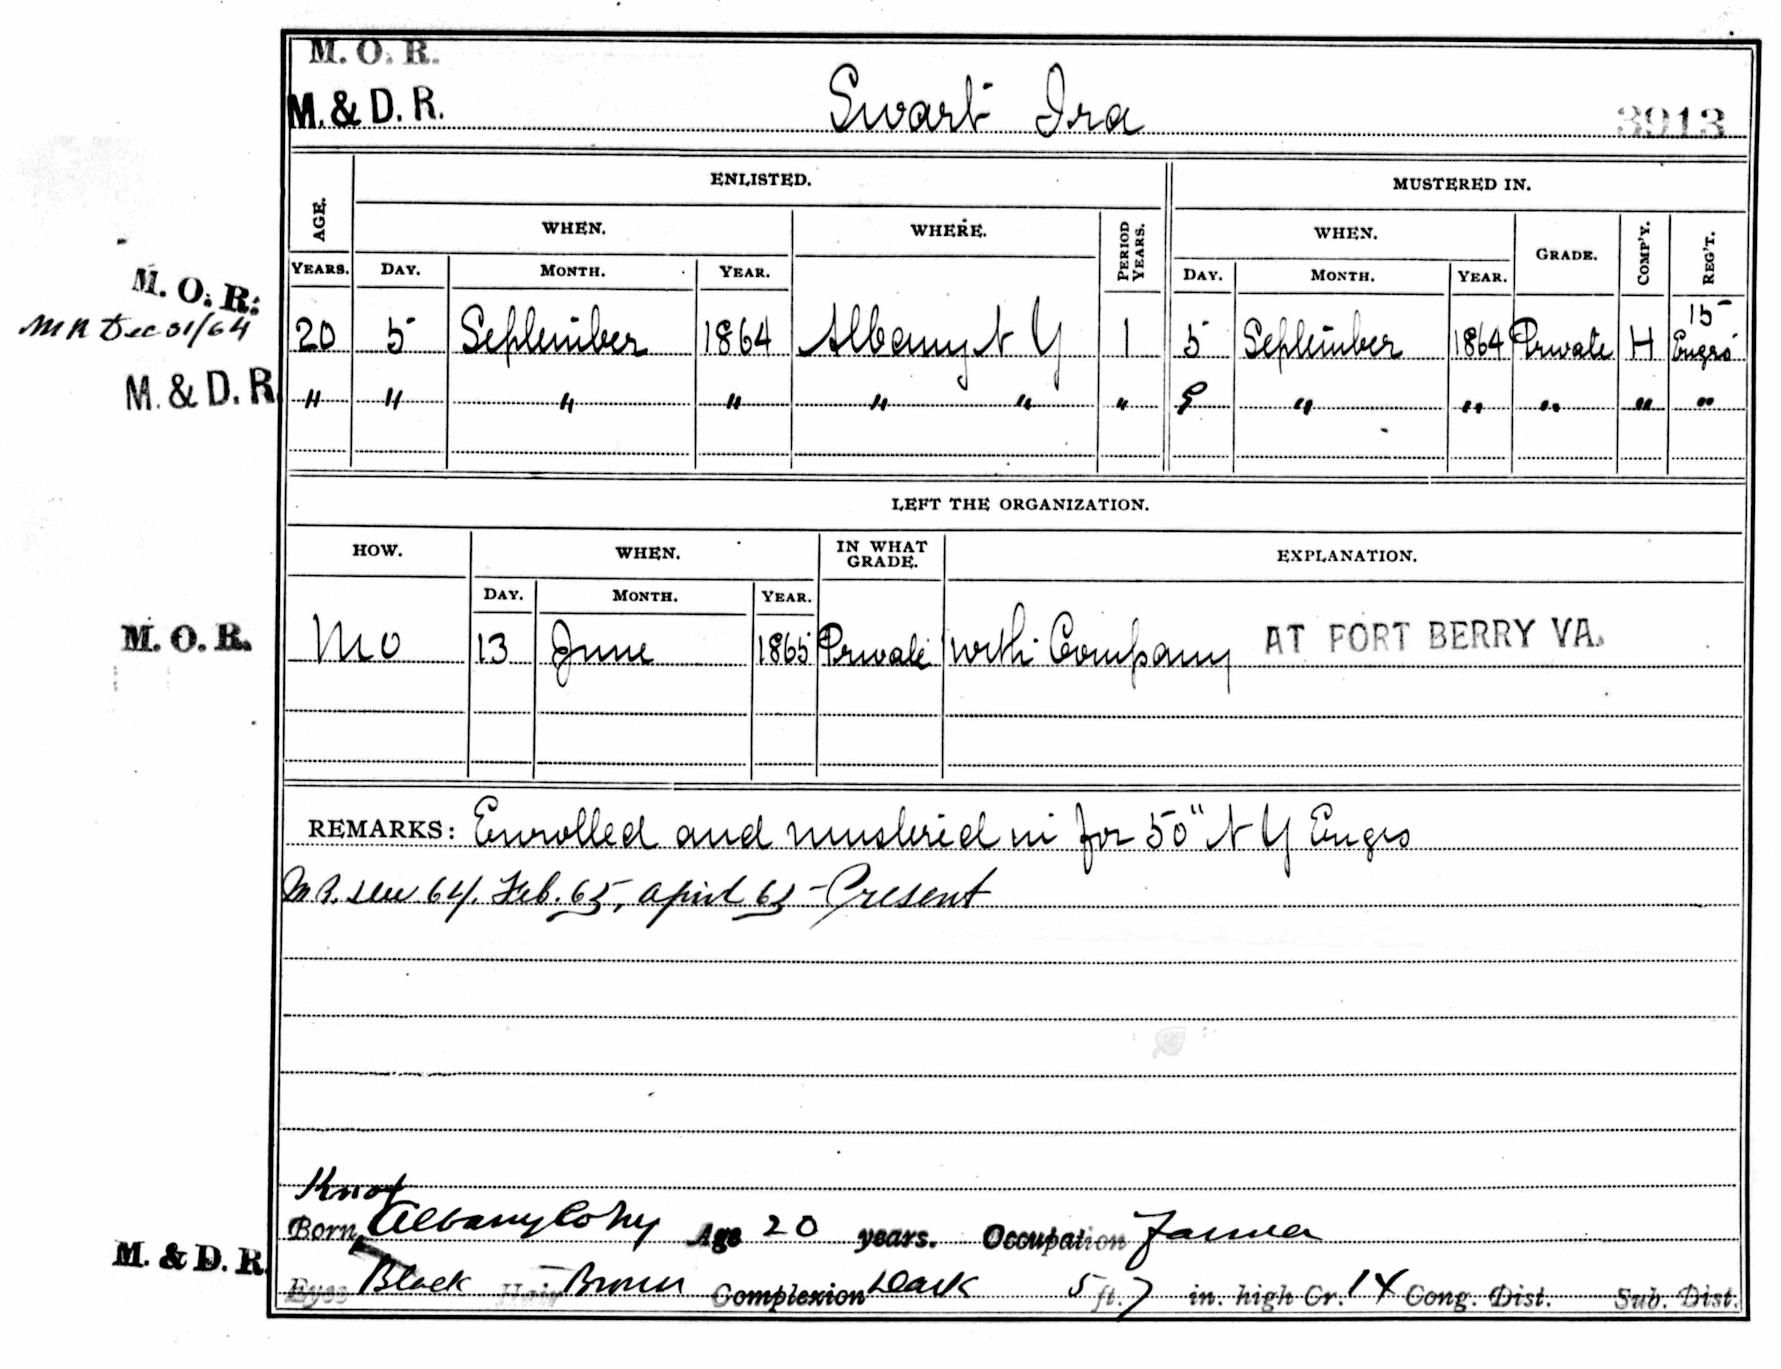 M. O. R.
M. & D. R. Swart Ira 3913
AGE. ENLISTED. MUSTERED IN.
WHEN. WHERE. PERIOD YEARS. WHEN. GRADE. COMP'Y. REG'T.
YEARS. DAY. MONTH. YEAR. DAY. MONTH. YEAR.
M. O. R.
M R Dec 31/64 20 5 September 1864 Albany N Y 1 5 September 1864 Private H 15 Engrs
M. & D. R. " " " " " " " 9 " " " " "
LEFT THE ORGANIZATION.
HOW. WHEN. IN WHAT GRADE. EXPLANATION.
DAY. MONTH. YEAR.
M. O. R. M O 13 June 1865 Private with Company AT FORT BERRY VA.
REMARKS: Enrolled and mustered in for 50" N Y Engrs
M R. Dec 64, Feb. 65, April 65 - Present
Knox
Born Albany Co Ny Age 20 years. Occupation Farmer
M. & D. R. Eyes Black Hair Brown Complexion Dark 5 ft. 7 in. high Cr. 14 Cong. Dist. Sub. Dist.